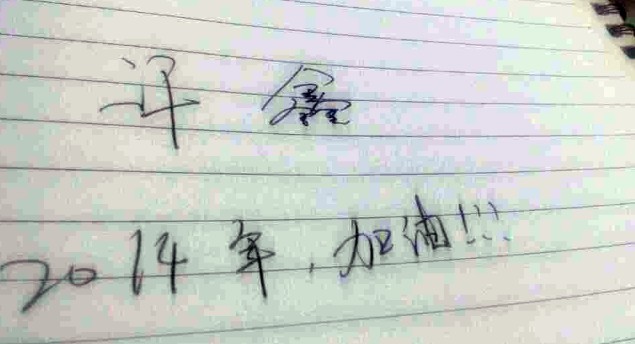 鑫
2014年,加油!!!